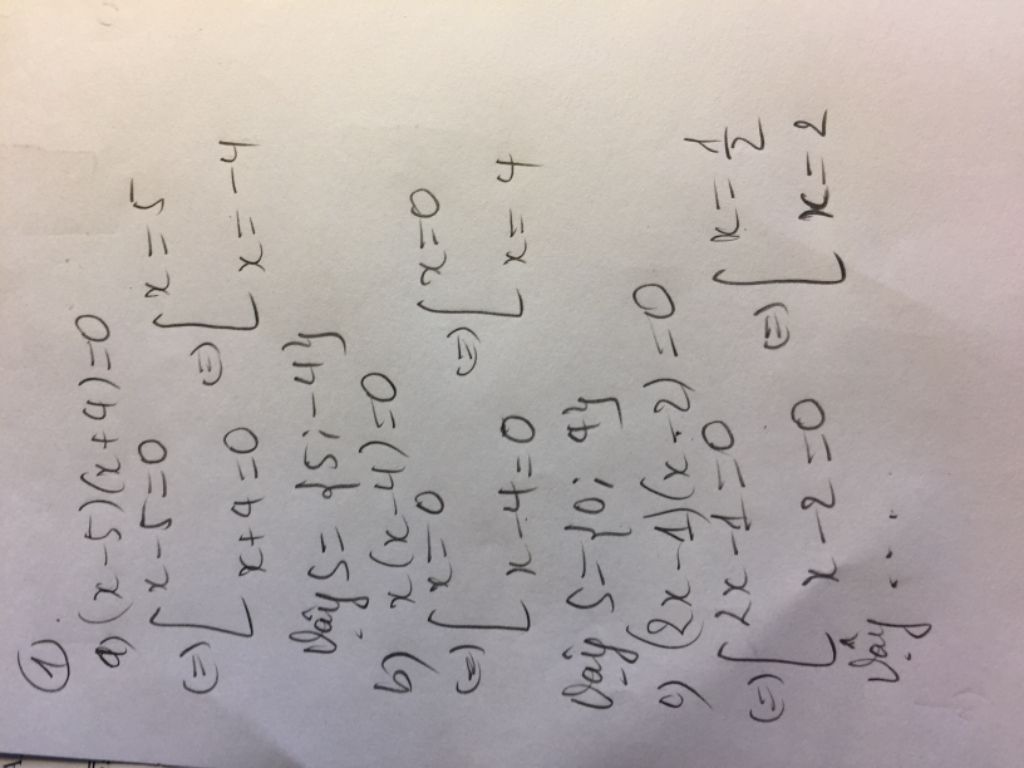 ①
a) (x-5)(x+4)=0
(=) [ x-5=0 (=) [ x=5
x+4=0 x=-4
Vậy S={5;-4}
b) x(x-4)=0
(=) [ x=0 (=) [ x=0
x-4=0 x=4
Vậy S={0;4}
c) (2x-1)(x-2)=0
(=) [ 2x-1=0 (=) [ x=1/2
x-2=0 x=2
Vậy ...